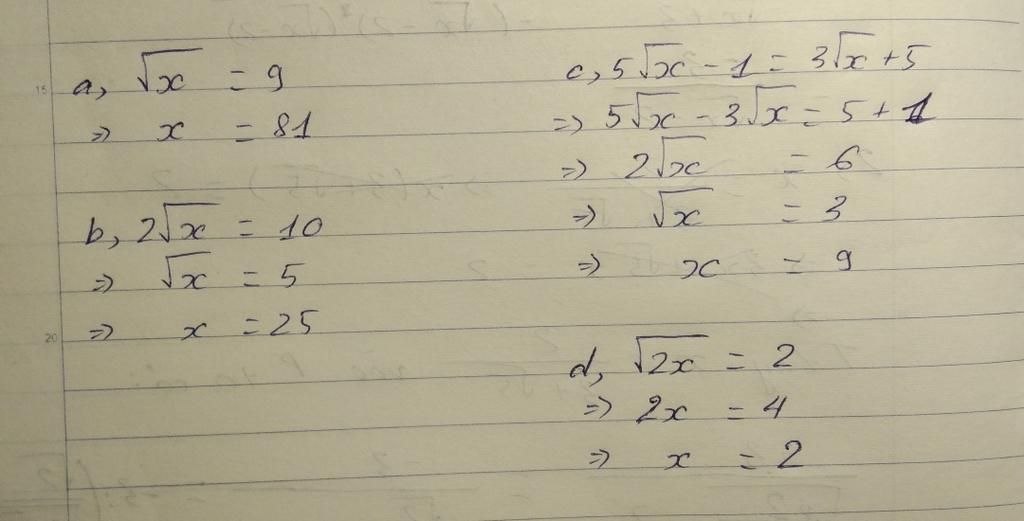 a, √x = 9
=> x = 81
b, 2√x = 10
=> √x = 5
=> x = 25
c, 5√x - 1 = 3√x + 5
=> 5√x - 3√x = 5 + 1
=> 2√x = 6
=> √x = 3
=> x = 9
d, √2x = 2
=> 2x = 4
=> x = 2
15
20